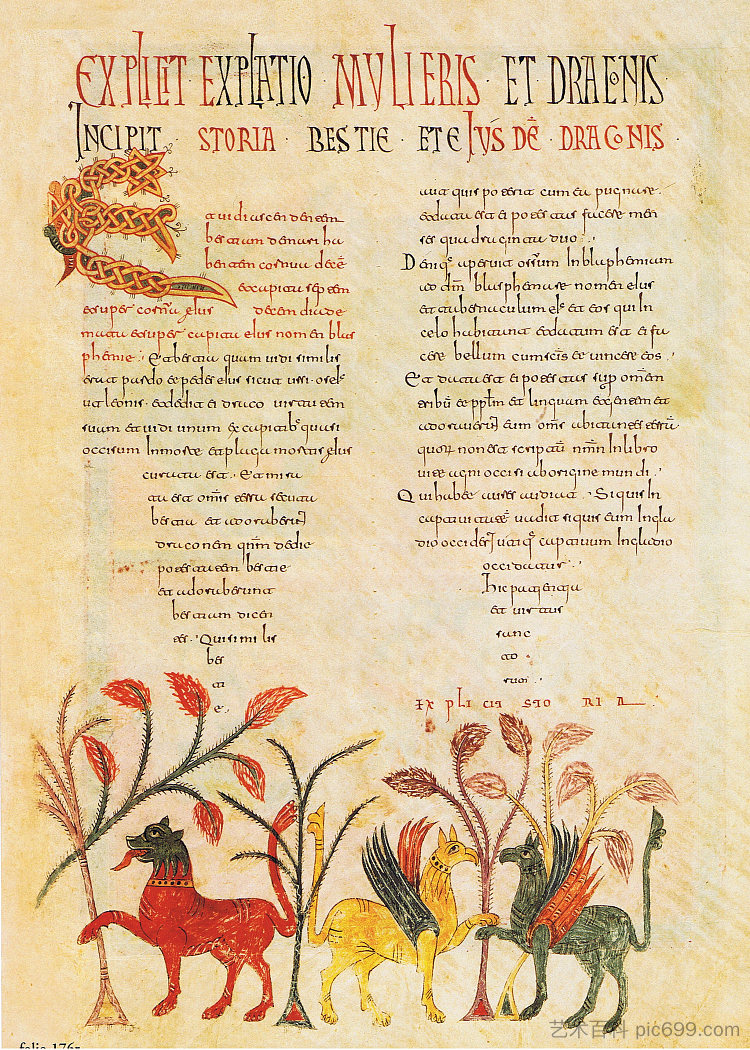 EXPLICIT · EXPLATIO · MULIERIS · ET DRACONIS
INCIPIT · STORIA · BESTIE · ET EIUSDĒ · DRACONIS ·
Et uidi ascendentem
bestiam de mari ha
bentem cornua decē
et capita septem
et super cornua eius decem diade
mata et super capita eius nomen blas
phemie. Et bestia quam uidi similis
erat pardo et pedes eius sicut ursi. os ei'
ut leonis. et dedit ei draco uirtutem
suam et uidi unum ex capitib' quasi
occisum in morte et plaga mortis eius
curata est. Et mira
ta est omīs terra secuta
bestia et adoraberūt
draconem qnm dedit
potestatem bestie
et adoraberunt
bestiam dicen
tes. Qui similis
bes
ti
e.
aut quis poterit cum ea pugnare.
et data est ei potestas facere men
ses quadraginta duo.
Deniq' aperuit ossum in blasphemium
ad dm̄ blasphemare nomen eius
et tabernaculum ei' et eos qui in
celo habitant et datum est ei fa
cere bellum cum scīs et uincere eos.
Et data est ei potestas sup omēm
tribū et pplm et linguam et gentem et
adorauerūt eum oms̄ abitantes terrā
quorum non est scriptū nmn in libro
uite agni occisi ab origine mundi.
Qui habet aures audiat. Si quis in
captiuitatē uadit si quis eum in gla
dio occiderit captiuum in gladio
occidatur.
Hic patientia
et uirtus
sanc
to
rum.
EXPLICIT STORIA
艺术百科 pic699.com
folio 176r